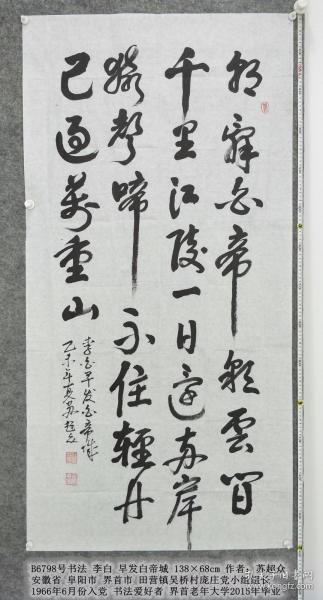 朝辞白帝彩雲間
千里江陵一日还两岸
猿聲啼不住輕舟
已過萬重山
李白早发白帝城
乙未年夏苏超众
B6798号书法 李白 早发白帝城 138×68cm 作者：苏超众
安徽省 阜阳市 界首市 田营镇吴桥村庞庄党小组组长
1966年6月份入党 书法爱好者 界首老年大学2015年毕业